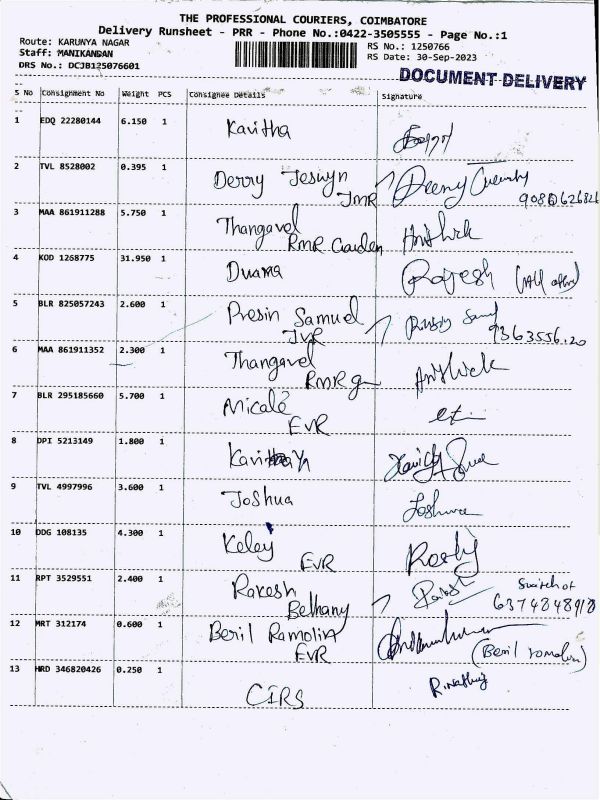 THE PROFESSIONAL COURIERS, COIMBATORE
Delivery Runsheet - PRR - Phone No.:0422-3505555 - Page No.:1
Route: KARUNYA NAGAR
Staff: MANIKANDAN
DRS No.: DCJB125076601
RS No.: 1250766
RS Date: 30-Sep-2023
DOCUMENT DELIVERY
S No Consignment No Weight PCS Consignee Details Signature
1 EDQ 22280144 6.150 1 Kavitha
2 TVL 8528002 0.395 1 Derry Jeswyn
JMR
3 MAA 861911288 5.750 1 Thangavel Hrithick
RMR Garden
4 KOD 1268775 31.950 1 Rajesh
5 BLR 825057243 2.600 1 Presin Samuel
JVR
6 MAA 861911352 2.300 1 Thangavel
RMR
7 BLR 295185660 5.700 1 Nicale
EVR
8 DPI 5213149 1.800 1
9 TVL 4997996 3.600 1 Joshua Joshua
10 DDG 108135 4.300 1 Keley
EVR
11 RPT 3529551 2.400 1 Rakesh
Bethany
12 MRT 312174 0.600 1 Beril Ramolin
EVR
13 HRD 346820426 0.250 1